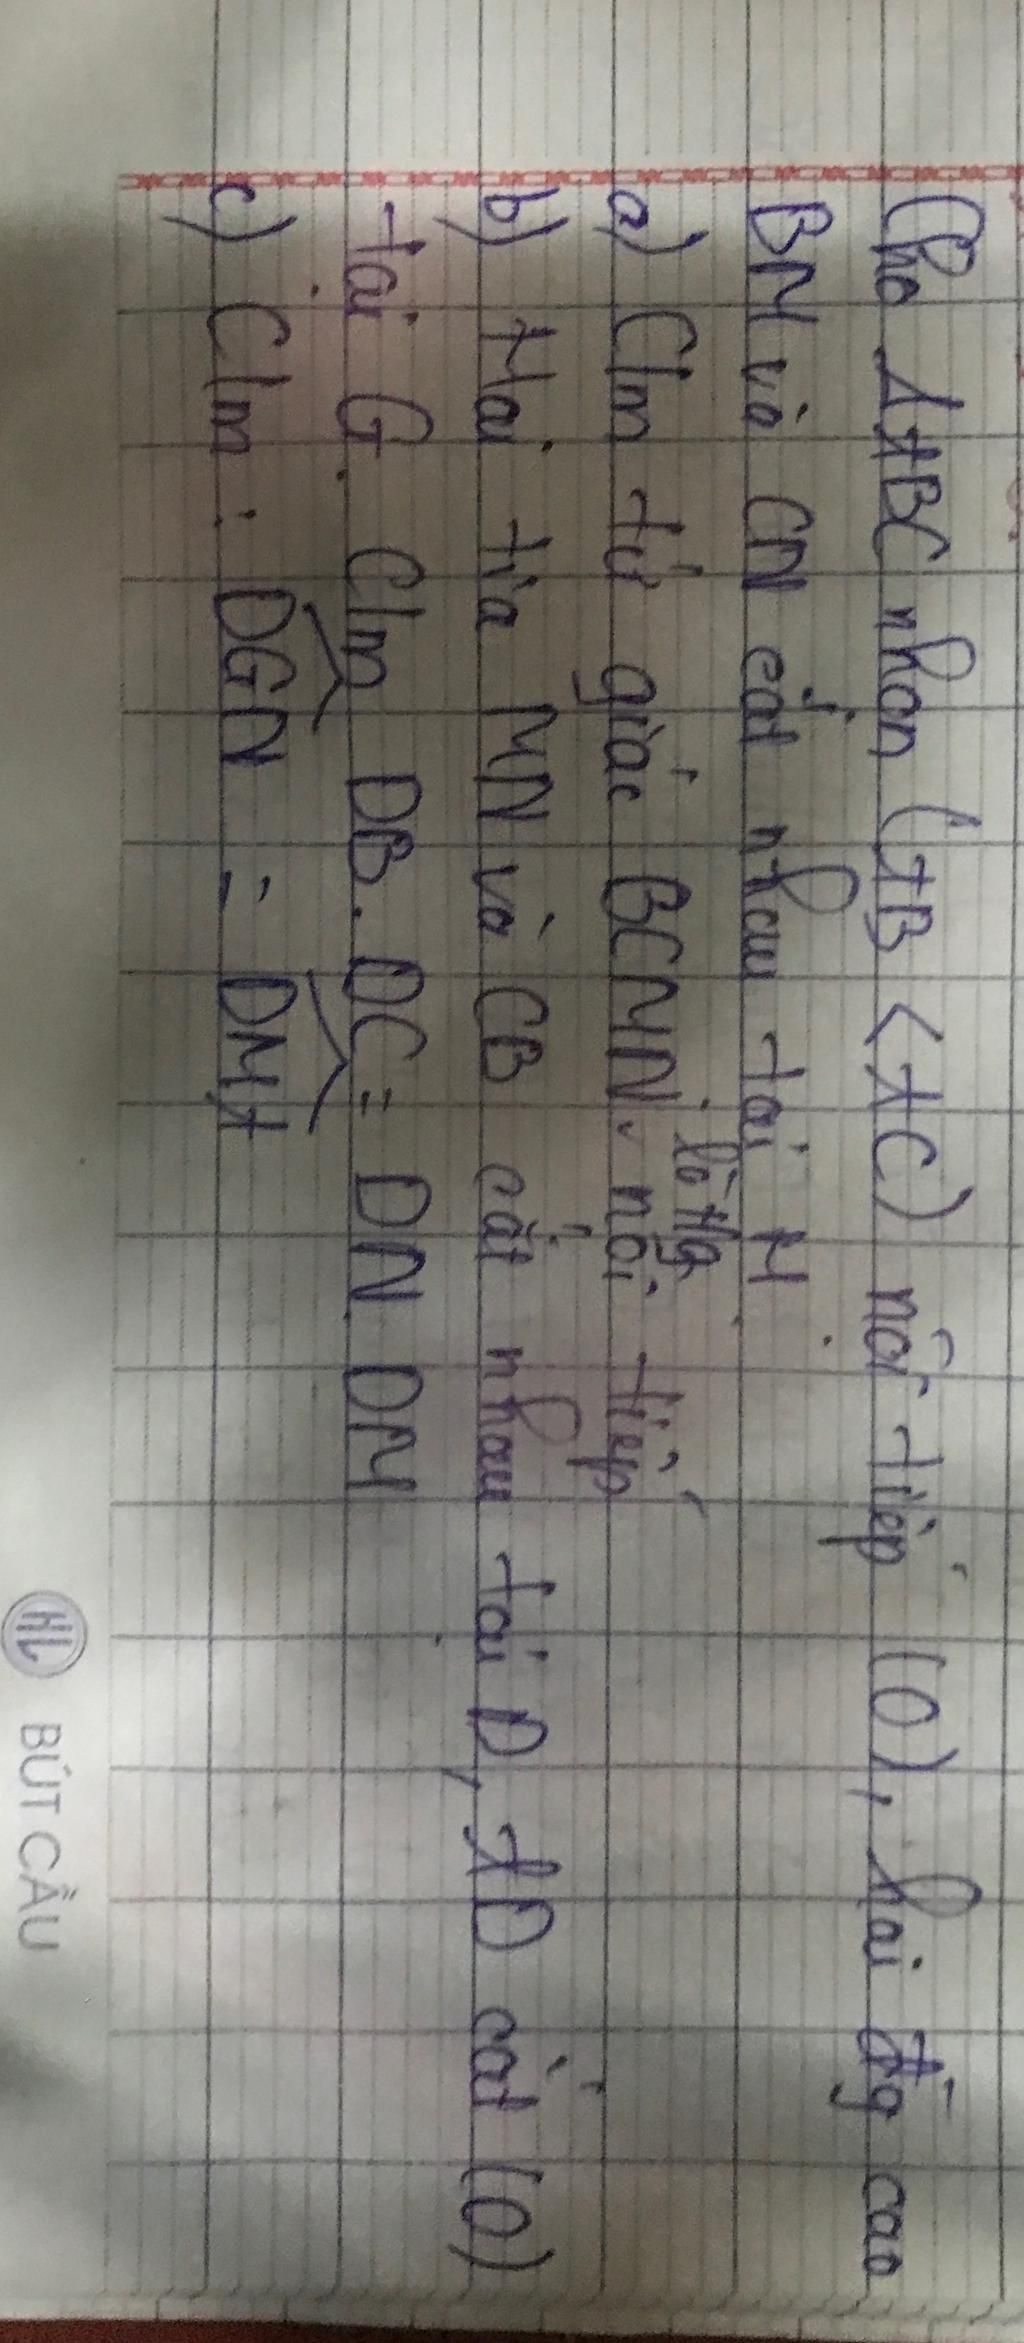 Cho ΔABC nhọn (AB < AC) nối tiếp (O), hai đg cao
BM và CN cắt nhau tại H
a) C/m tứ giác BCMN là tứ g nội tiếp
b) Hai tia MN và CB cắt nhau tại D, AD cắt (O)
tại G. C/m DB.DC = DN.DM
c) C/m: DGN = DMA
HL BÚT CẦU